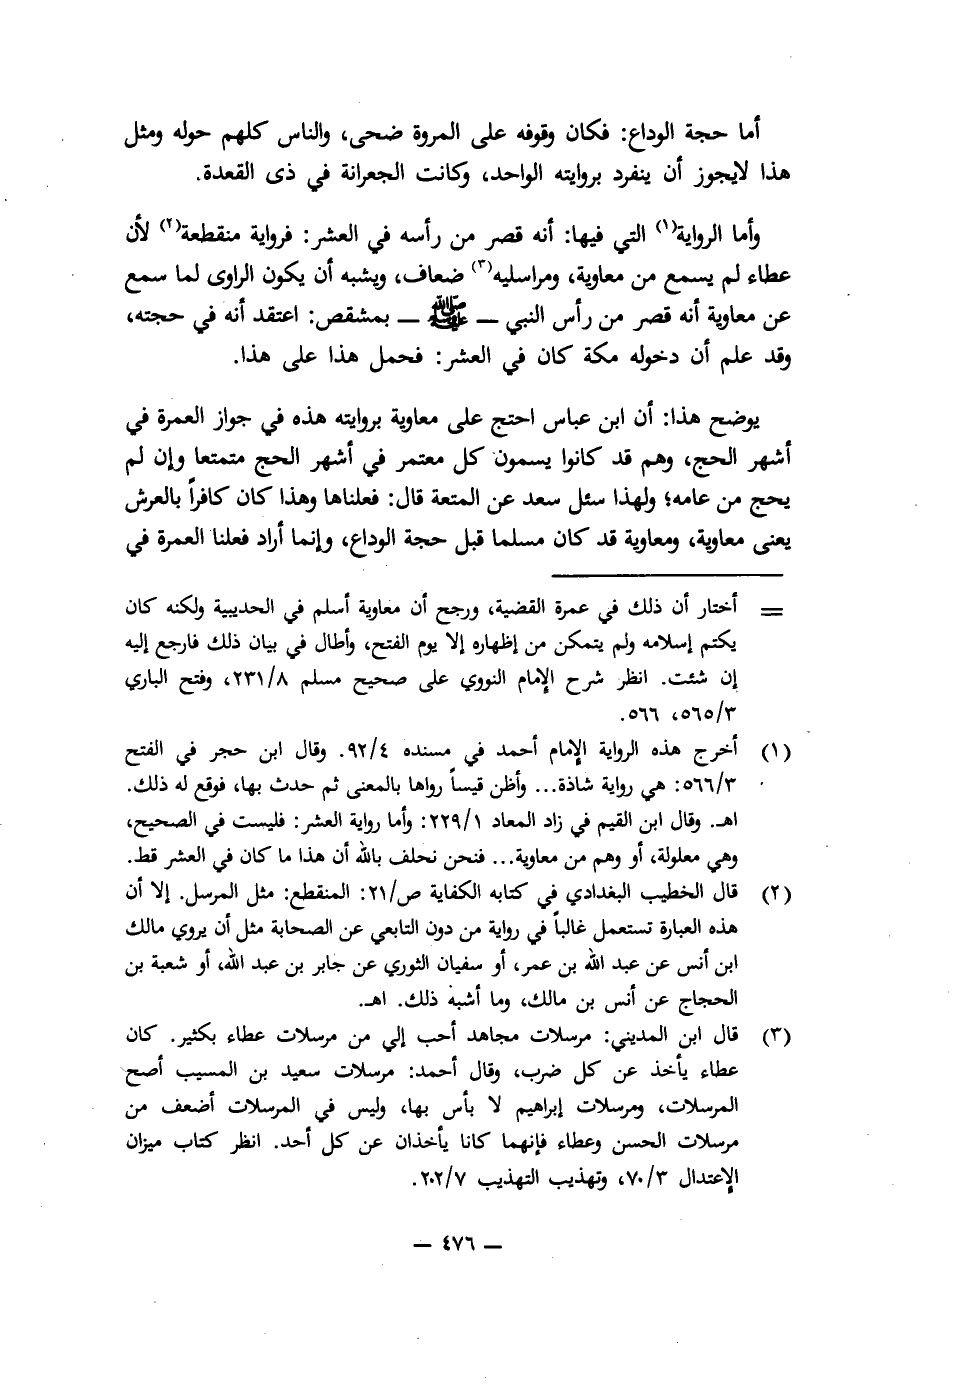 أما حجة الوداع: فكان وقوفه على المروة ضحى، والناس كلهم حوله ومثل
هذا لايجوز أن ينفرد بروايته الواحد، وكانت الجعرانة في ذى القعدة.
وأما الرواية(١) التي فيها: أنه قصر من رأسه في العشر: فرواية منقطعة(٢) لأن
عطاء لم يسمع من معاوية، ومراسليه(٣) ضعاف، ويشبه أن يكون الراوى لما سمع
عن معاوية أنه قصر من رأس النبي — ﷺ — بمشقص: اعتقد أنه في حجته،
وقد علم أن دخوله مكة كان في العشر: فحمل هذا على هذا.
يوضح هذا: أن ابن عباس احتج على معاوية بروايته هذه في جواز العمرة في
أشهر الحج، وهم قد كانوا يسمون كل معتمر في أشهر الحج متمتعا وإن لم
يحج من عامه؛ ولهذا سئل سعد عن المتعة قال: فعلناها وهذا كان كافراً بالعرش
يعنى معاوية، ومعاوية قد كان مسلما قبل حجة الوداع، وإنما أراد فعلنا العمرة في
= أختار أن ذلك في عمرة القضية، ورجح أن معاوية أسلم في الحديبية ولكنه كان
يكتم إسلامه ولم يتمكن من إظهاره إلا يوم الفتح، وأطال في بيان ذلك فارجع إليه
إن شئت. انظر شرح الإمام النووي على صحيح مسلم ٢٣١/٨، وفتح الباري
٥٦٥/٣، ٥٦٦.
(١) أخرج هذه الرواية الإمام أحمد في مسنده ٩٢/٤. وقال ابن حجر في الفتح
٥٦٦/٣: هي رواية شاذة... وأظن قيساً رواها بالمعنى ثم حدث بها، فوقع له ذلك.
اهـ. وقال ابن القيم في زاد المعاد ٢٢٩/١: وأما رواية العشر: فليست في الصحيح،
وهي معلولة، أو وهم من معاوية... فنحن نحلف بالله أن هذا ما كان في العشر قط.
(٢) قال الخطيب البغدادي في كتابه الكفاية ص/٢١: المنقطع: مثل المرسل. إلا أن
هذه العبارة تستعمل غالباً في رواية من دون التابعي عن الصحابة مثل أن يروي مالك
ابن أنس عن عبد الله بن عمر، أو سفيان الثوري عن جابر بن عبد الله، أو شعبة بن
الحجاج عن أنس بن مالك، وما أشبه ذلك. اهـ.
(٣) قال ابن المديني: مرسلات مجاهد أحب إلي من مرسلات عطاء بكثير. كان
عطاء يأخذ عن كل ضرب، وقال أحمد: مرسلات سعيد بن المسيب أصح
المرسلات، ومرسلات إبراهيم لا بأس بها، وليس في المرسلات أضعف من
مرسلات الحسن وعطاء فإنهما كانا يأخذان عن كل أحد. انظر كتاب ميزان
الإعتدال ٧٠/٣، وتهذيب التهذيب ٢٠٢/٧.
— ٤٧٦ —